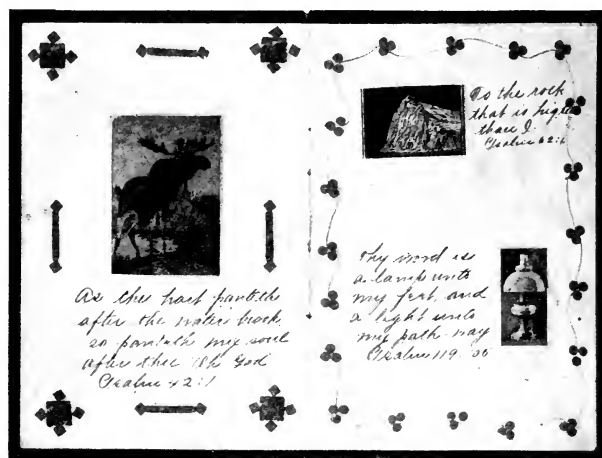 As the hart panteth
after the water brook
so panteth my soul
after thee Oh God
Psalm 42:1
To the rock
that is higher
than I
Psalm 62:1
Thy word is
a lamp unto
my feet, and
a light unto
my path-way
Psalm 119